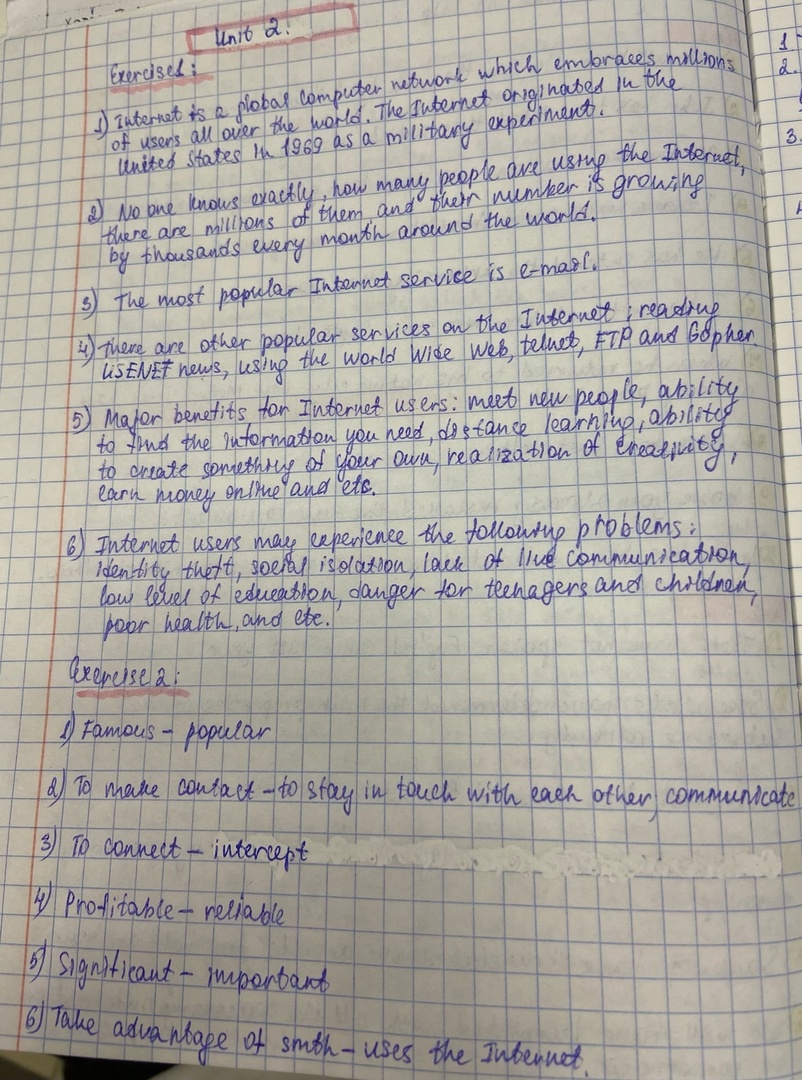 Unit 2:
Exercise1:
1) Internet is a global computer network which embraces millions
of users all over the world. The Internet originated in the
United States in 1969 as a military experiment.
2) No one knows exactly, how many people are using the Internet,
there are millions of them, and their number is growing
by thousands every month around the world.
3) The most popular Internet service is e-mail.
4) there are other popular services on the Internet: reading
USENET news, using the World Wide Web, telnet, FTP and Gopher.
5) Major benefits for Internet users: meet new people, ability
to find the information you need, distance learning, ability
to create something of your own, realization of creativity,
earn money online and etc.
6) Internet users may experience the following problems:
identity theft, social isolation, lack of live communication,
low level of education, danger for teenagers and children,
poor health, and etc.
Exercise 2:
1) Famous - popular
2) To make contact - to stay in touch with each other, communicate
3) To connect - intercept
4) Profitable - reliable
5) Significant - important
6) Take advantage of smth - uses the Internet.
1
2.
3.